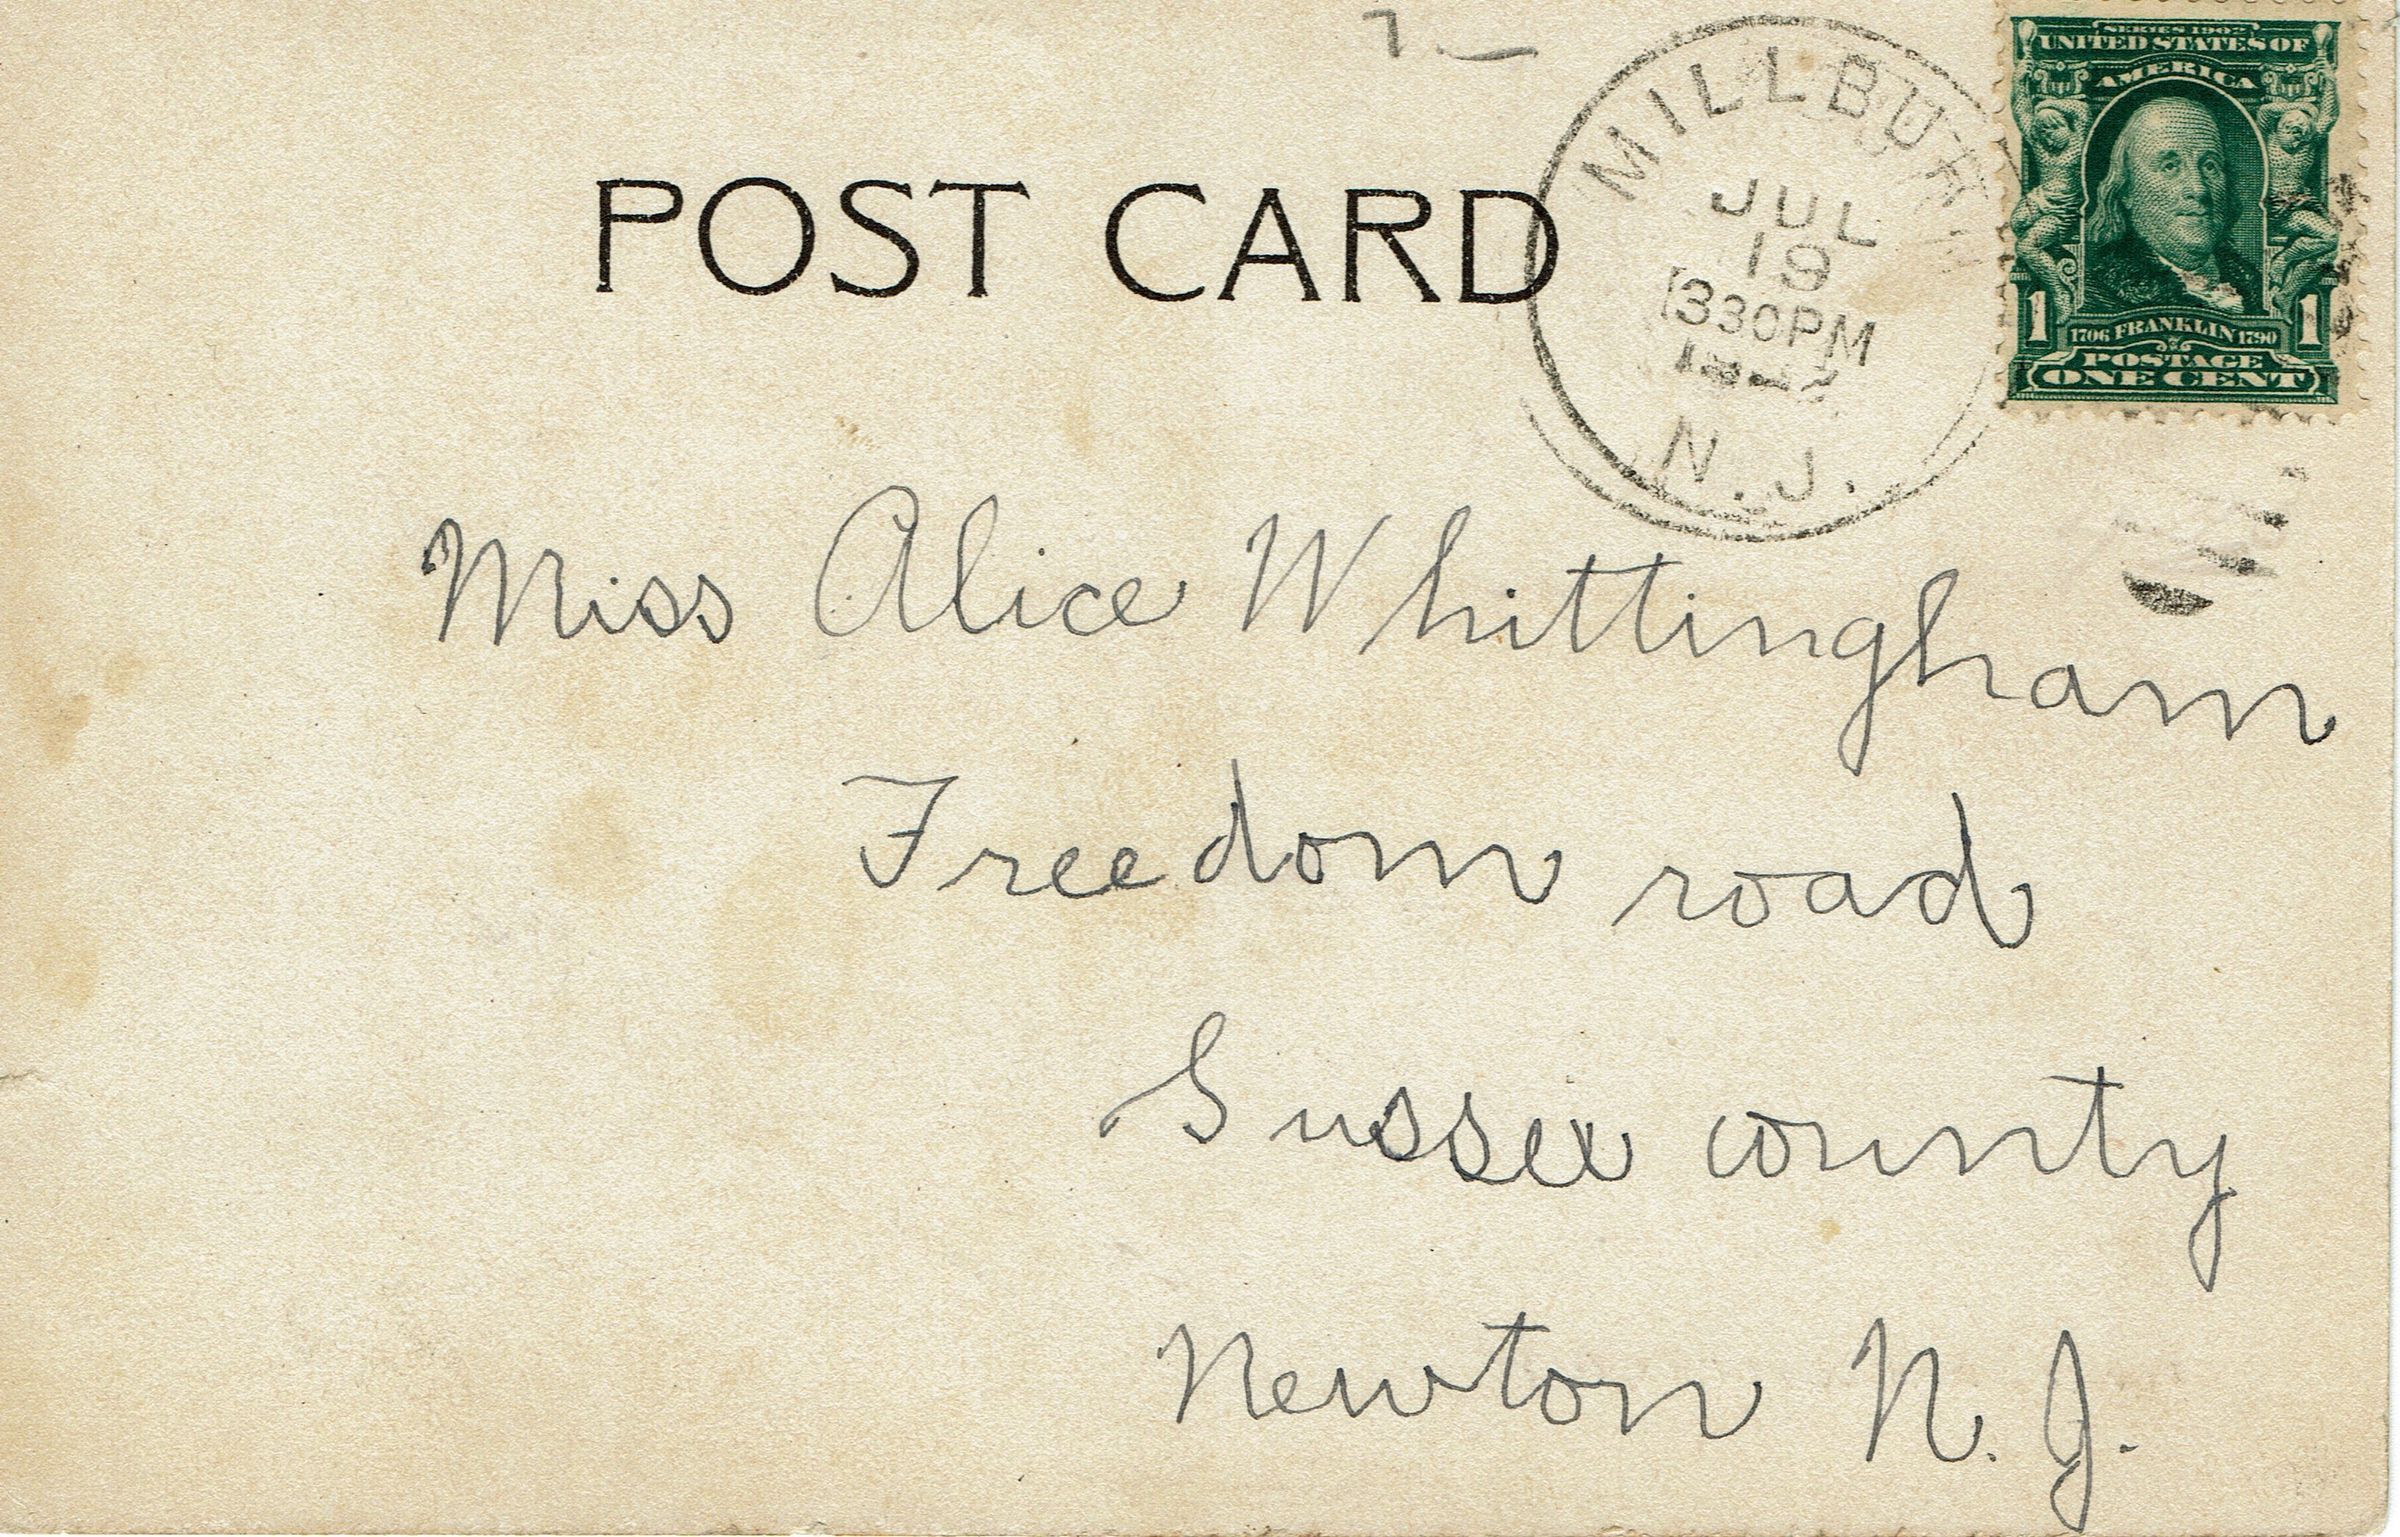 SERIES 1902
UNITED STATES OF
AMERICA
1 1706 FRANKLIN 1790 1
POSTAGE
ONE CENT
MILLBUR
JUL
19
330PM
N.J.
POST CARD
Miss Alice Whittingham
Freedom road
Sussex county
Newton N.J.